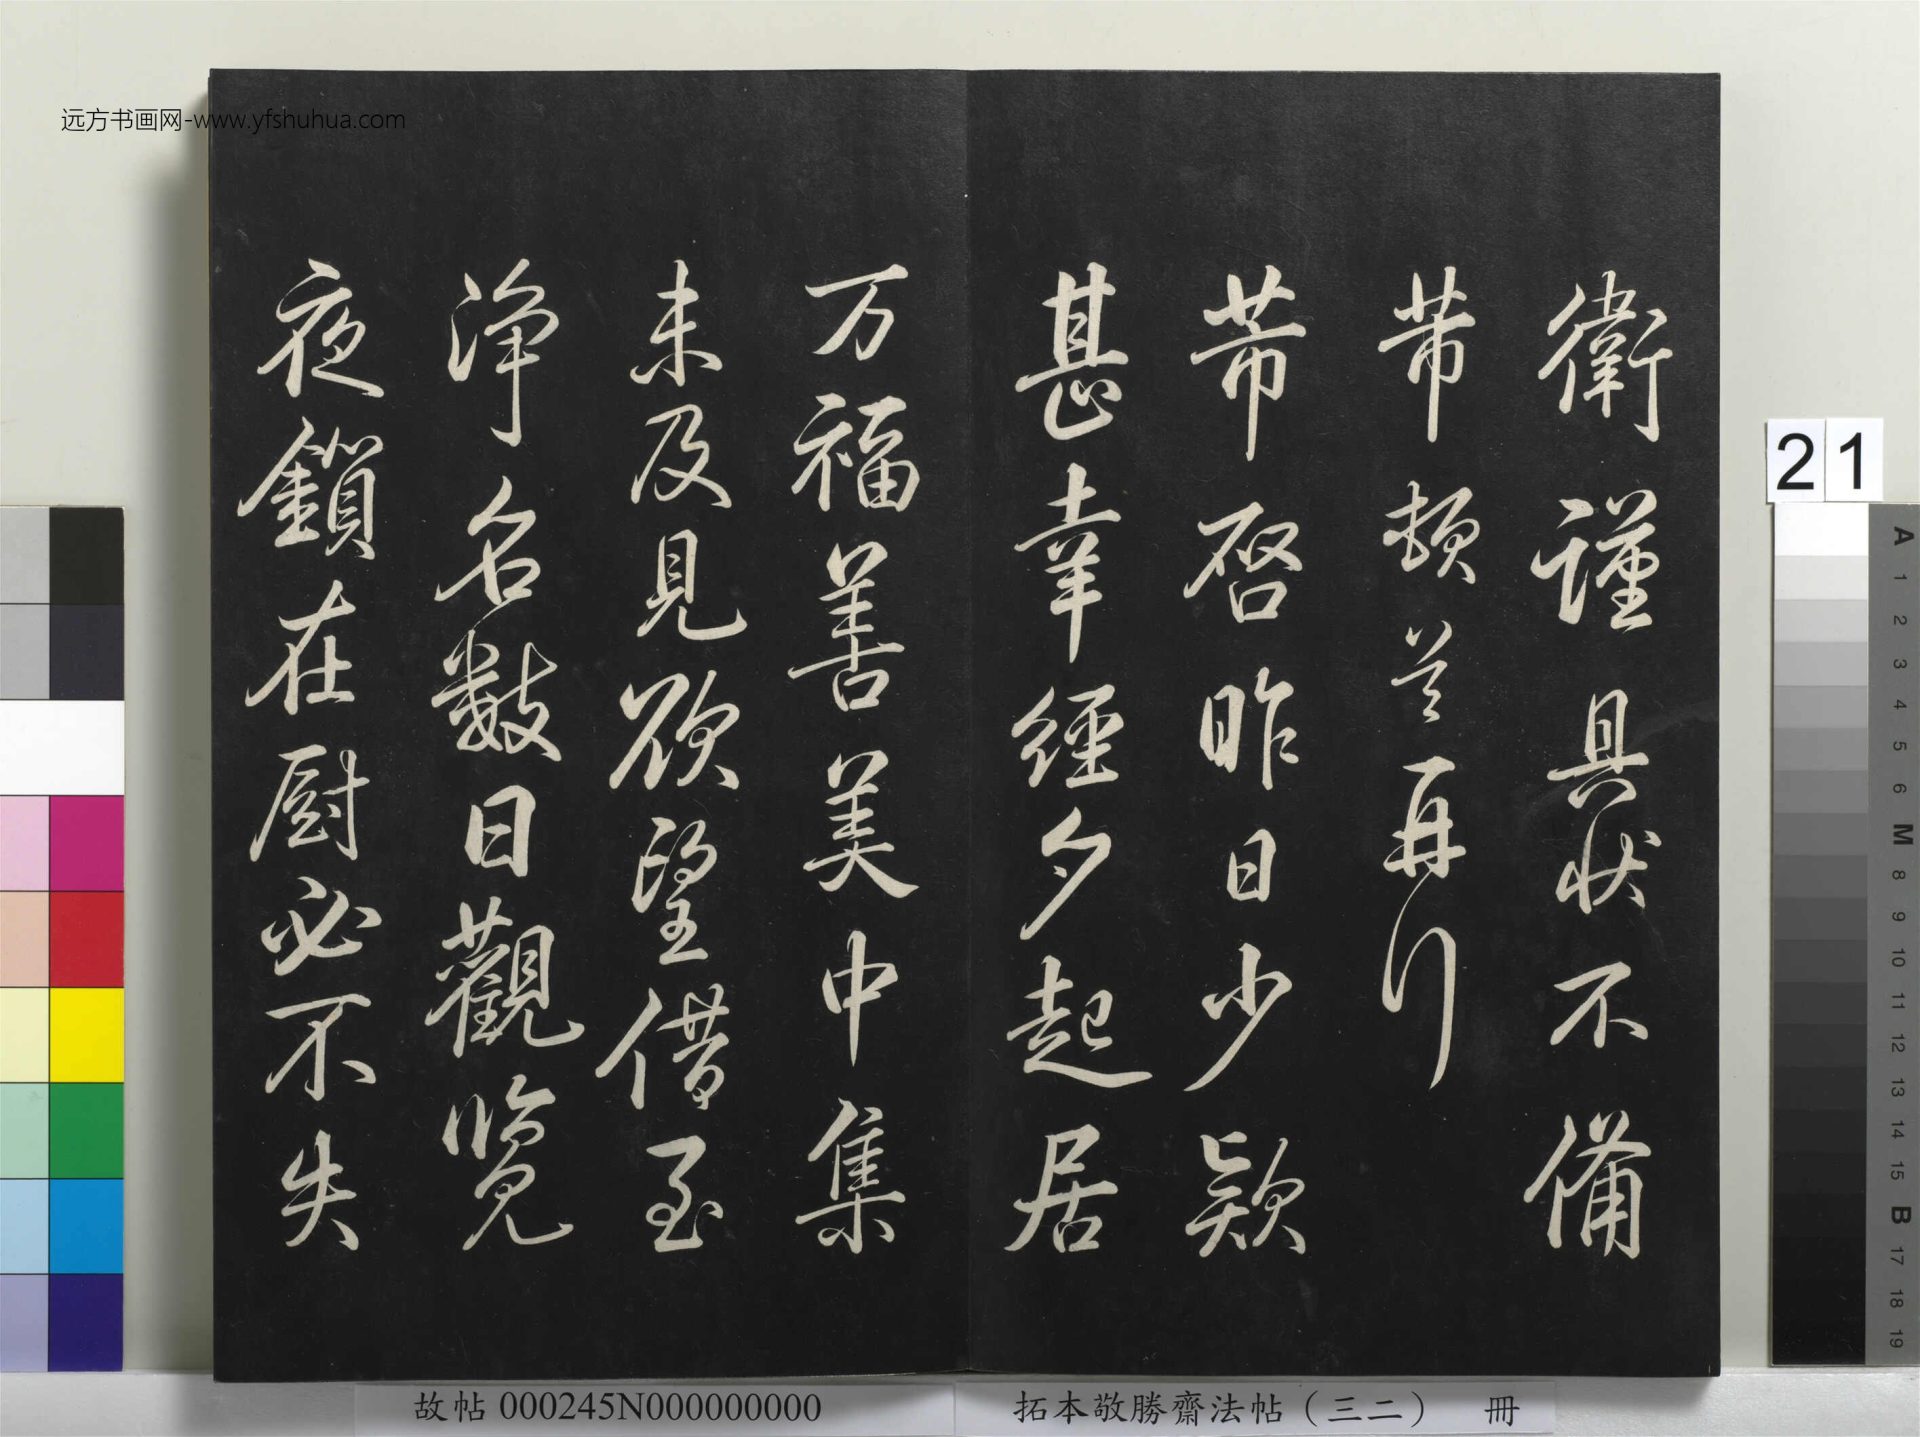 远方书画网-www.yfshuhua.com
衛謹具狀不備
芾頓首再行
芾啓昨日少款
甚幸經夕起居
万福善美中集
未及見欲望借至
淨名數日觀覽
夜鎖在厨必不失
21
故帖 000245N000000000
拓本敬勝齋法帖（三二） 冊
A 1 2 3 4 5 6 M 8 9 10 11 12 13 14 15 B 17 18 19